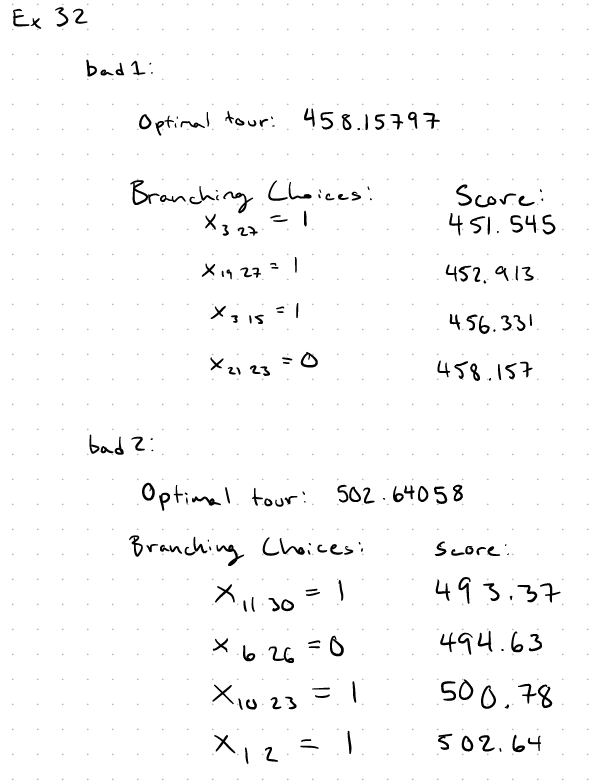 Ex 32
bad 1:
Optimal tour: 458.15797
Branching Choices: Score:
x 3 27 = 1 451.545
x 19 27 = 1 452.913
x 3 15 = 1 456.331
x 21 23 = 0 458.157
bad 2:
Optimal tour: 502.64058
Branching Choices: Score:
x 11 30 = 1 493.37
x 6 26 = 0 494.63
x 10 23 = 1 500.78
x 1 2 = 1 502.64